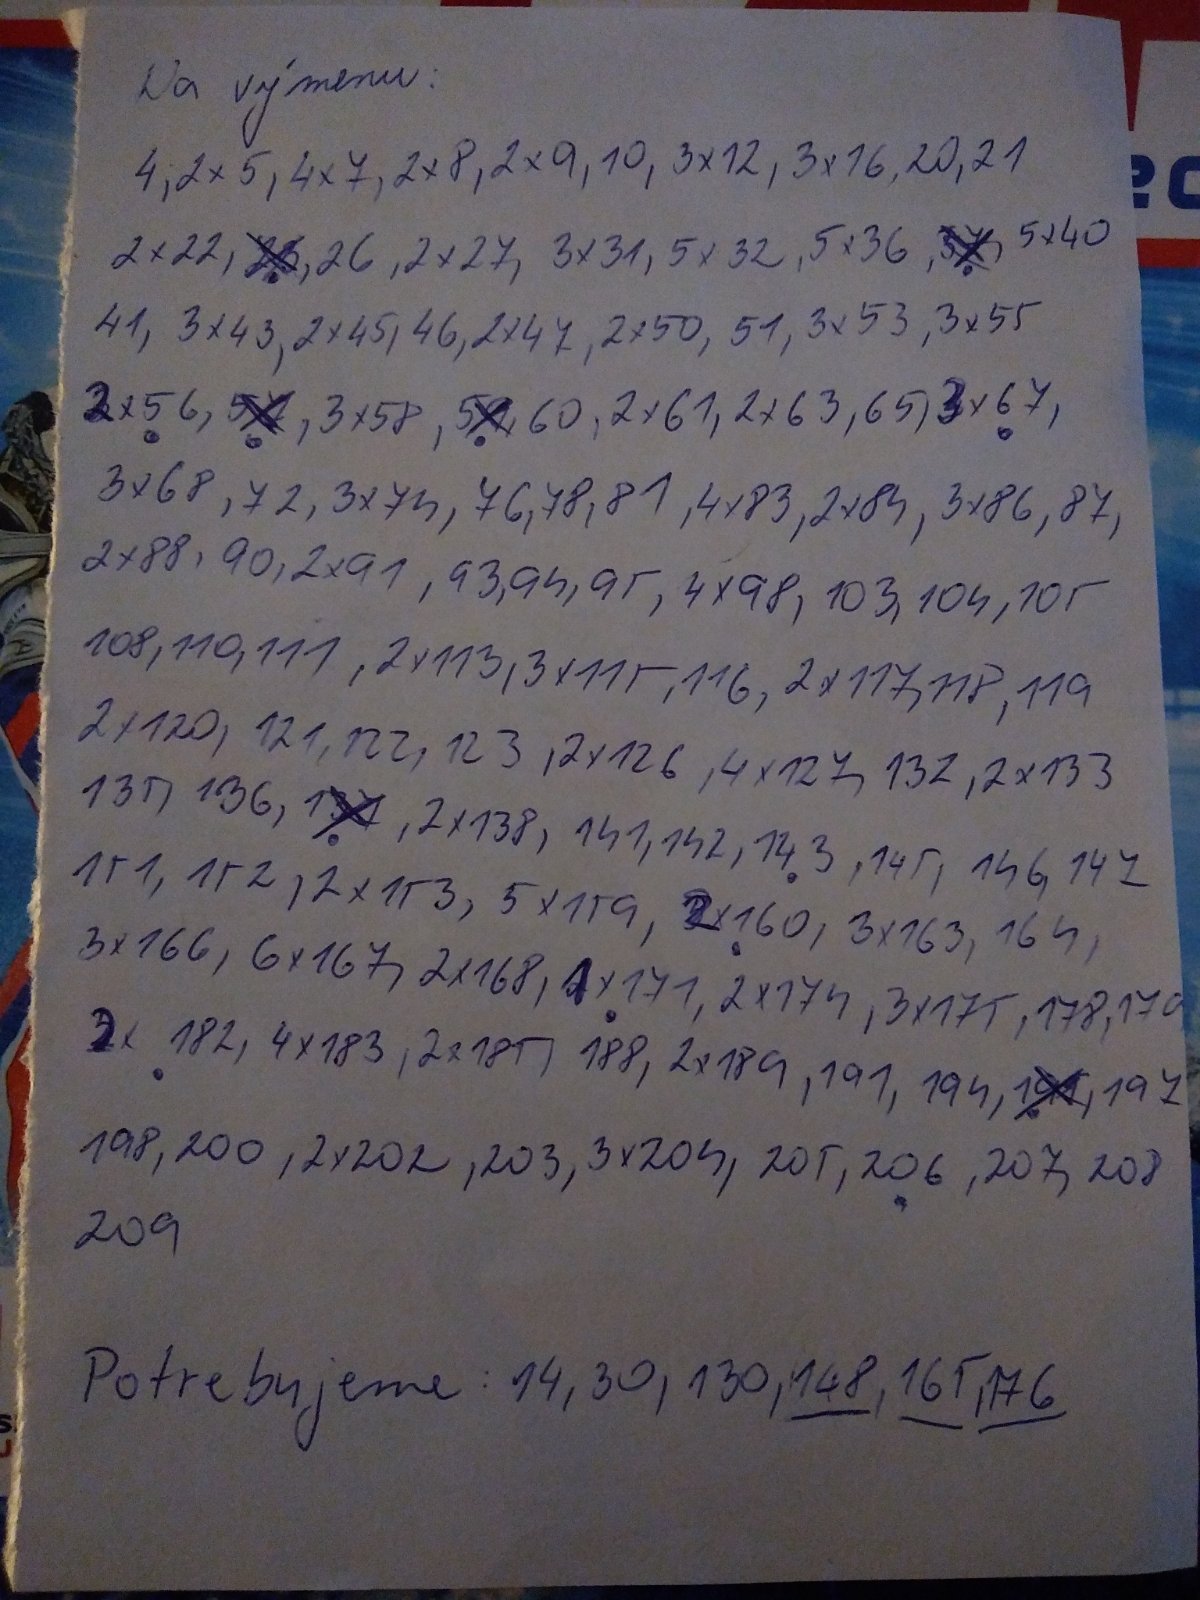 Na výmenu:
4, 2x5, 4x7, 2x8, 2x9, 10, 3x12, 3x16, 20, 21
2x22, 26, 2x27, 3x31, 5x32, 5x36, 5x40
41, 3x43, 2x45, 46, 2x47, 2x50, 51, 3x53, 3x55
2x56, 3x58, 60, 2x61, 2x63, 65, 3x67,
3x68, 72, 3x74, 76, 78, 81, 4x83, 2x84, 3x86, 87,
2x88, 90, 2x91, 93, 94, 95, 4x98, 103, 104, 105
108, 110, 111, 2x113, 3x115, 116, 2x117, 118, 119
2x120, 121, 122, 123, 2x126, 4x127, 132, 2x133
135, 136, 137, 2x138, 141, 142, 143, 145, 146, 147
151, 152, 2x153, 5x159, 2x160, 3x163, 164,
3x166, 6x167, 2x168, 1x171, 2x174, 3x175, 178, 179
2x 182, 4x183, 2x185, 188, 2x189, 191, 194, 195, 197
198, 200, 2x202, 203, 3x204, 205, 206, 207, 208
209
Potrebujeme: 14, 30, 130, 148, 165, 176